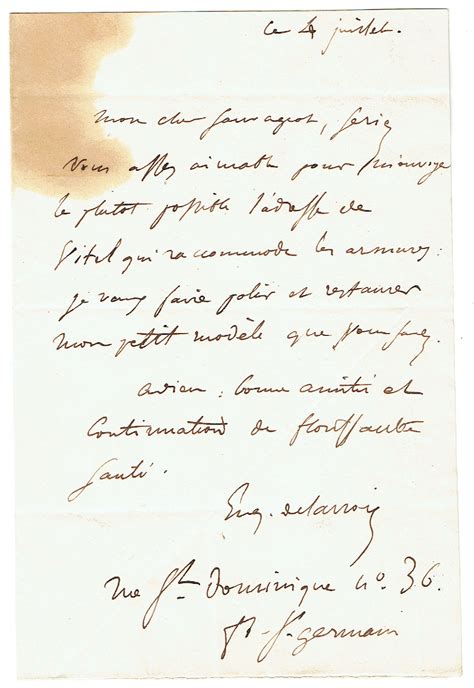 ce 4 juillet.
mon cher Sauvageot, seriez
vous assez aimable pour m'envoyer
le plutot possible l'adresse de
Vitel qui raccommode les armures:
je veux faire polir et restaurer
mon petit modèle que vous savez.
adieu : bonne amitié et
continuation de florissante
santé.
Eug. delacroix
rue St. Dominique no. 36.
f. St. germain